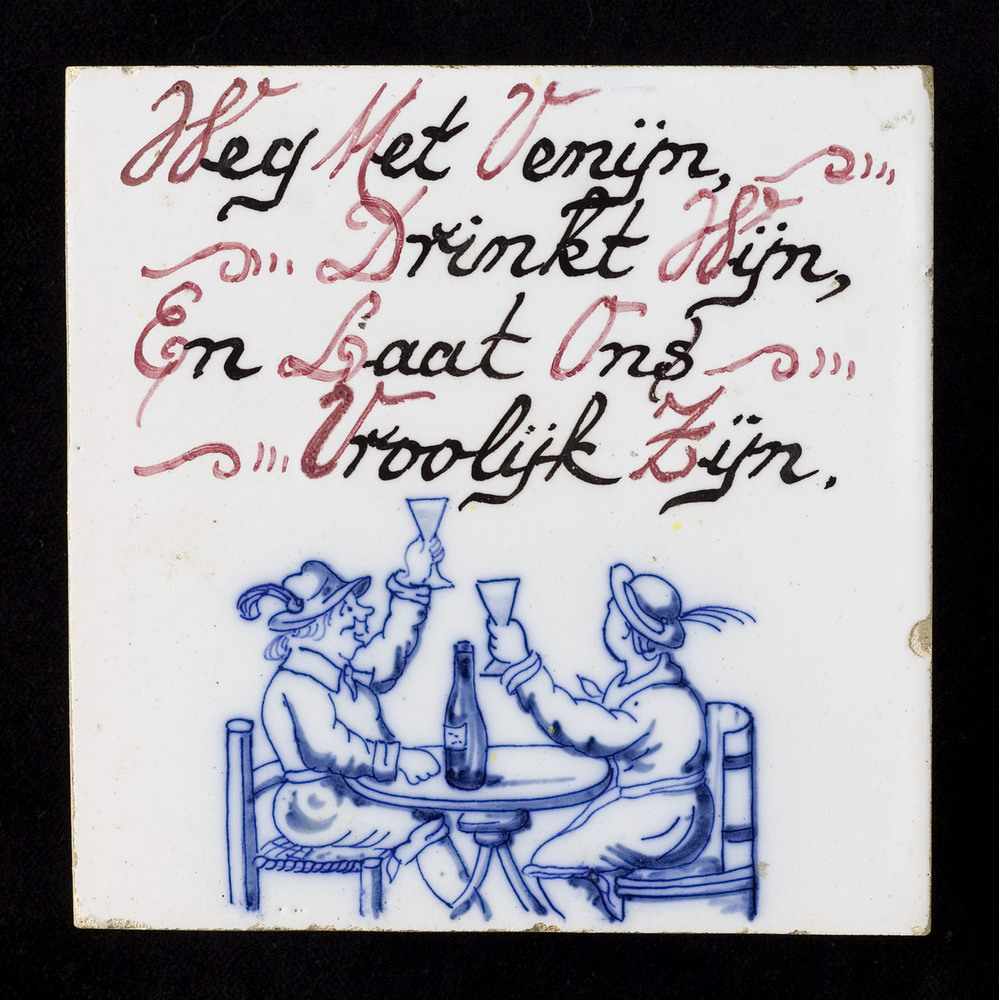 Weg Met Venijn,
Drinkt Wijn,
En Laat Ons
Vroolijk Zijn.